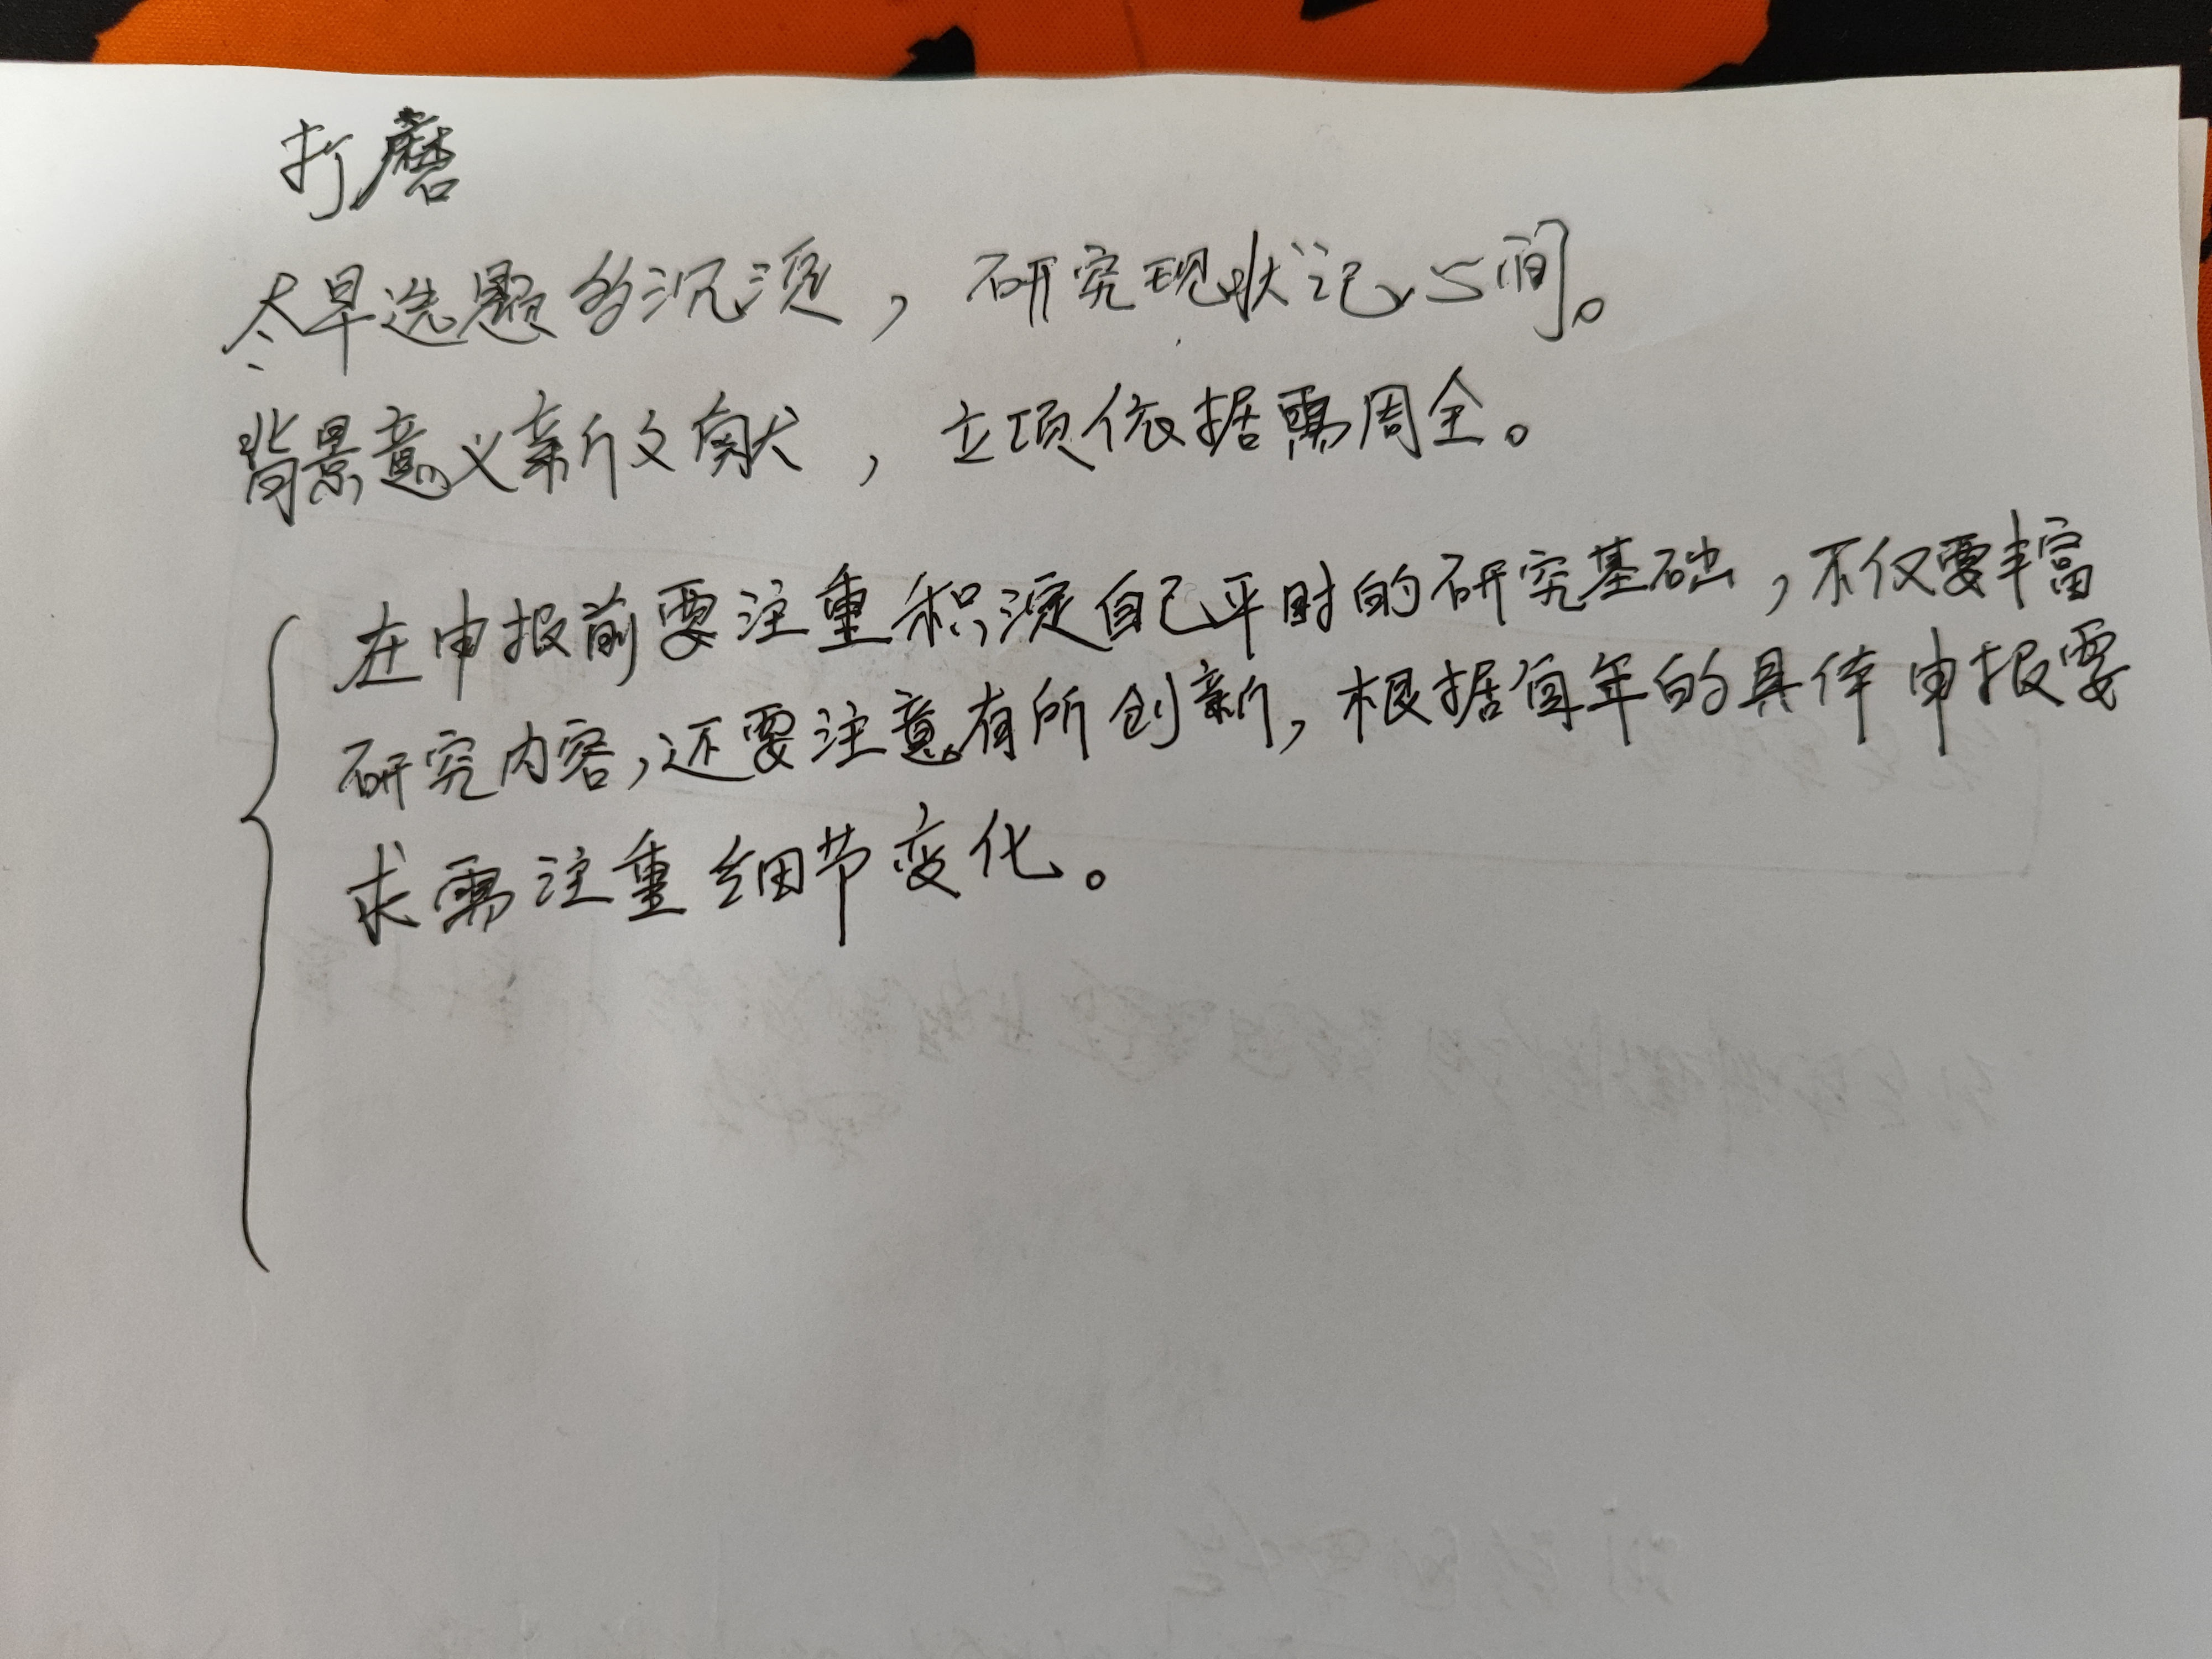 打磨
尽早选题多沉淀，研究现状记心间。
背景意义新文献，立项依据需周全。
在申报前要注重积淀自己平时的研究基础，不仅要丰富
研究内容，还要注意有所创新，根据每年的具体申报要
求需注重细节变化。